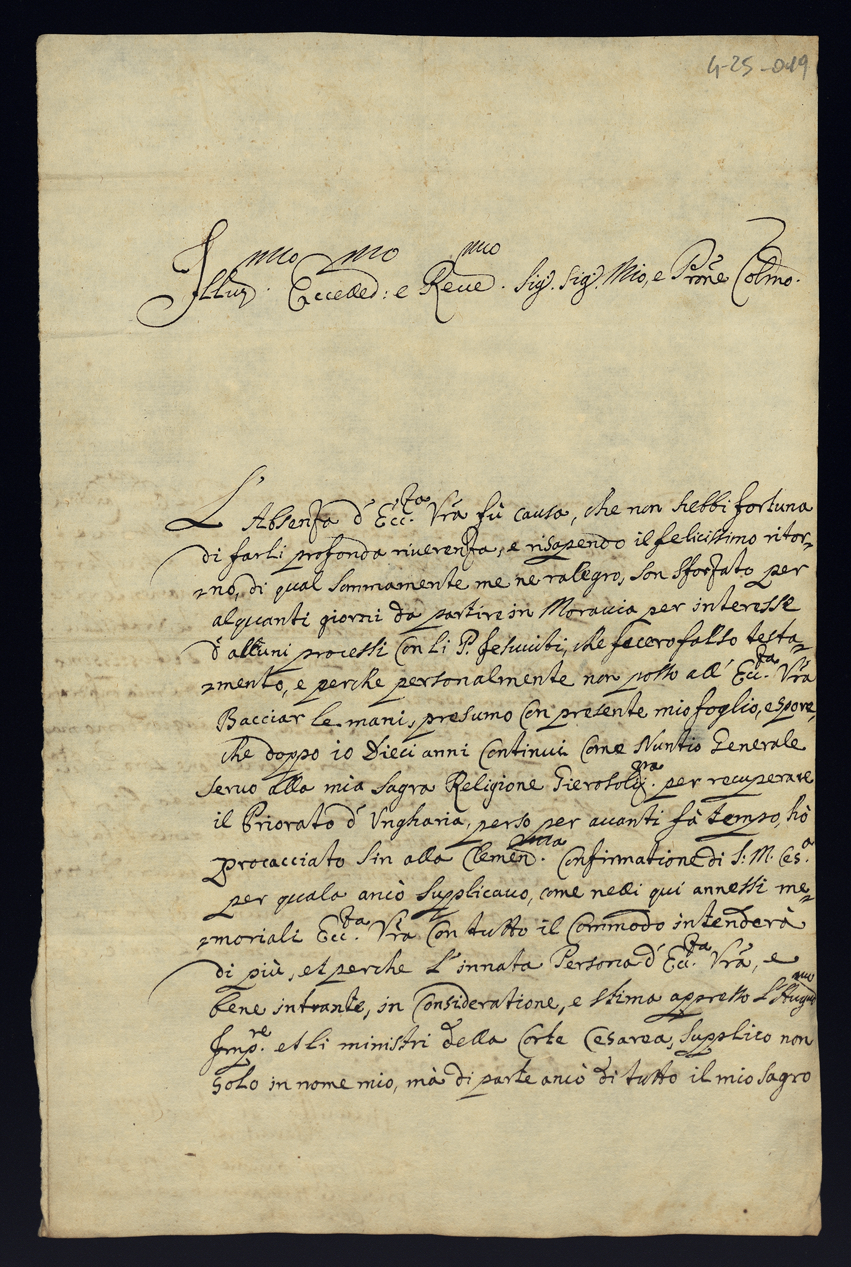 4-25-019
Illus.mo Ecced.mo: e Reue.mo Sig.r Sig.r Mio, e Prone Colmo.
L'Absenza d'Ecc.za Vra fù causa, che non hebbi fortuna
di farli profonda riuerenza, e risapendo il felicissimo ritor=
=no, di qual sommamente me ne ralegro, son sforzato per
alquanti giorni da partire in Morauia per interesse
d'alcuni processi con li P. Jesuuiti, che fecero falso testa=
=mento, e perche personalmente non posso all' Ecc.za Vra
Bacciar le mani, presumo con presente mio foglio, espore,
che doppo io Dieci anni Continui Come Nuntio Generale
seruo alla mia Sagra Religione Gierosoly.gra per recuperare
il Priorato d'Ungharia, perso per auanti fà tempo, hò
procacciato sin alla Clemen.ma Confirmatione di S: M. Ces.a
per quala ancò supplicauo, come nelli qui annessi me=
=moriali Ecc.za Vra Con tutto il Commodo intenderà
di più, et perche l'innata Persona d'Ecc.za Vra, e
bene intrante, in Consideratione, e stima appresso l'Augu.mo
Imp.re et li ministri della Corte Cesarea, Supplico non
solo in nome mio, mà di parte ancò di tutto il mio sagro